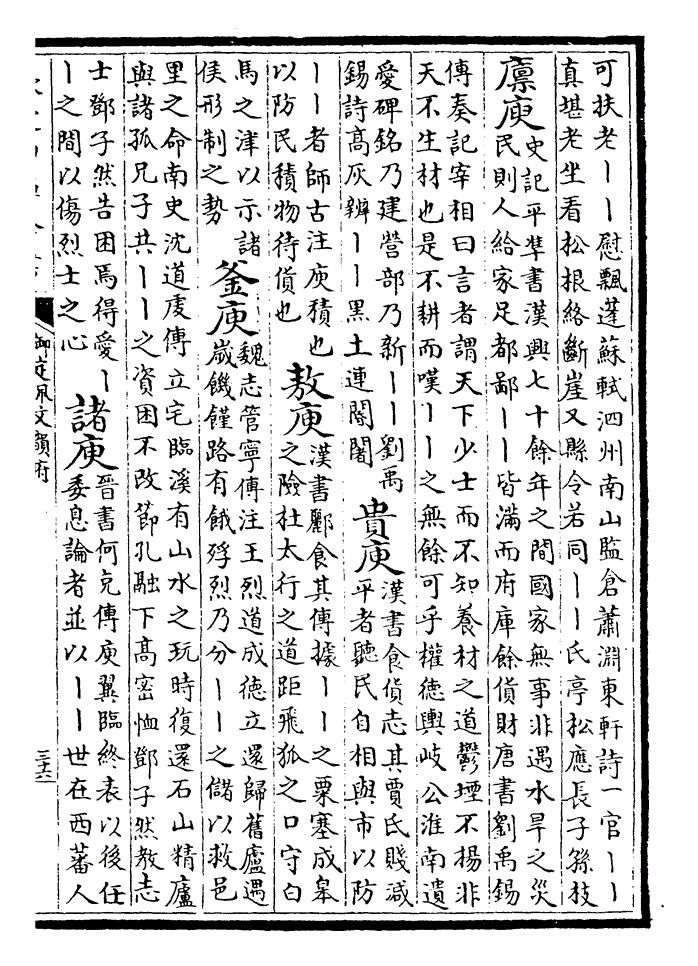 可扶老丨丨慰飄蓬蘇軾泗州南山監倉蕭淵東軒詩一官丨丨
真堪老坐看松根絡斷崖又縣令若同丨丨氏亭松應長子孫枝
廪庾
史記平準書漢興七十餘年之間國家無事非遇水旱之災
民則人給家足都鄙丨丨皆滿而府庫餘貨財唐書劉禹錫
傳奏記宰相曰言者謂天下少士而不知養材之道鬱堙不揚非
天不生材也是不耕而嘆丨丨之無餘可乎權德輿岐公淮南遺
愛碑銘乃建營部乃新丨丨劉禹
錫詩高灰辨丨丨黑土連闍闍
貴庾
漢書食貨志其賈氐賤減
平者聽民自相與市以防
丨丨者師古注庾積也
以防民積物待貨也
敖庾
漢書酈食其傳據丨丨之粟塞成皋
之險杜太行之道距飛狐之口守白
馬之津以示諸
侯形制之勢
釜庾
魏志管寧傳注王烈道成德立還歸舊廬遇
歲饑饉路有餓殍烈乃分丨丨之儲以救邑
里之命南史沈道虔傳立宅臨溪有山水之玩時復還石山精廬
與諸孤兄子共丨丨之資困不改節孔融下高密恤鄧子然教志
士鄧子然告困焉得愛丨
丨之間以傷烈士之心
諸庾
晉書何充傳庾翼臨終表以後任
委息論者並以丨丨世在西蕃人
御定佩文韻府
三十六